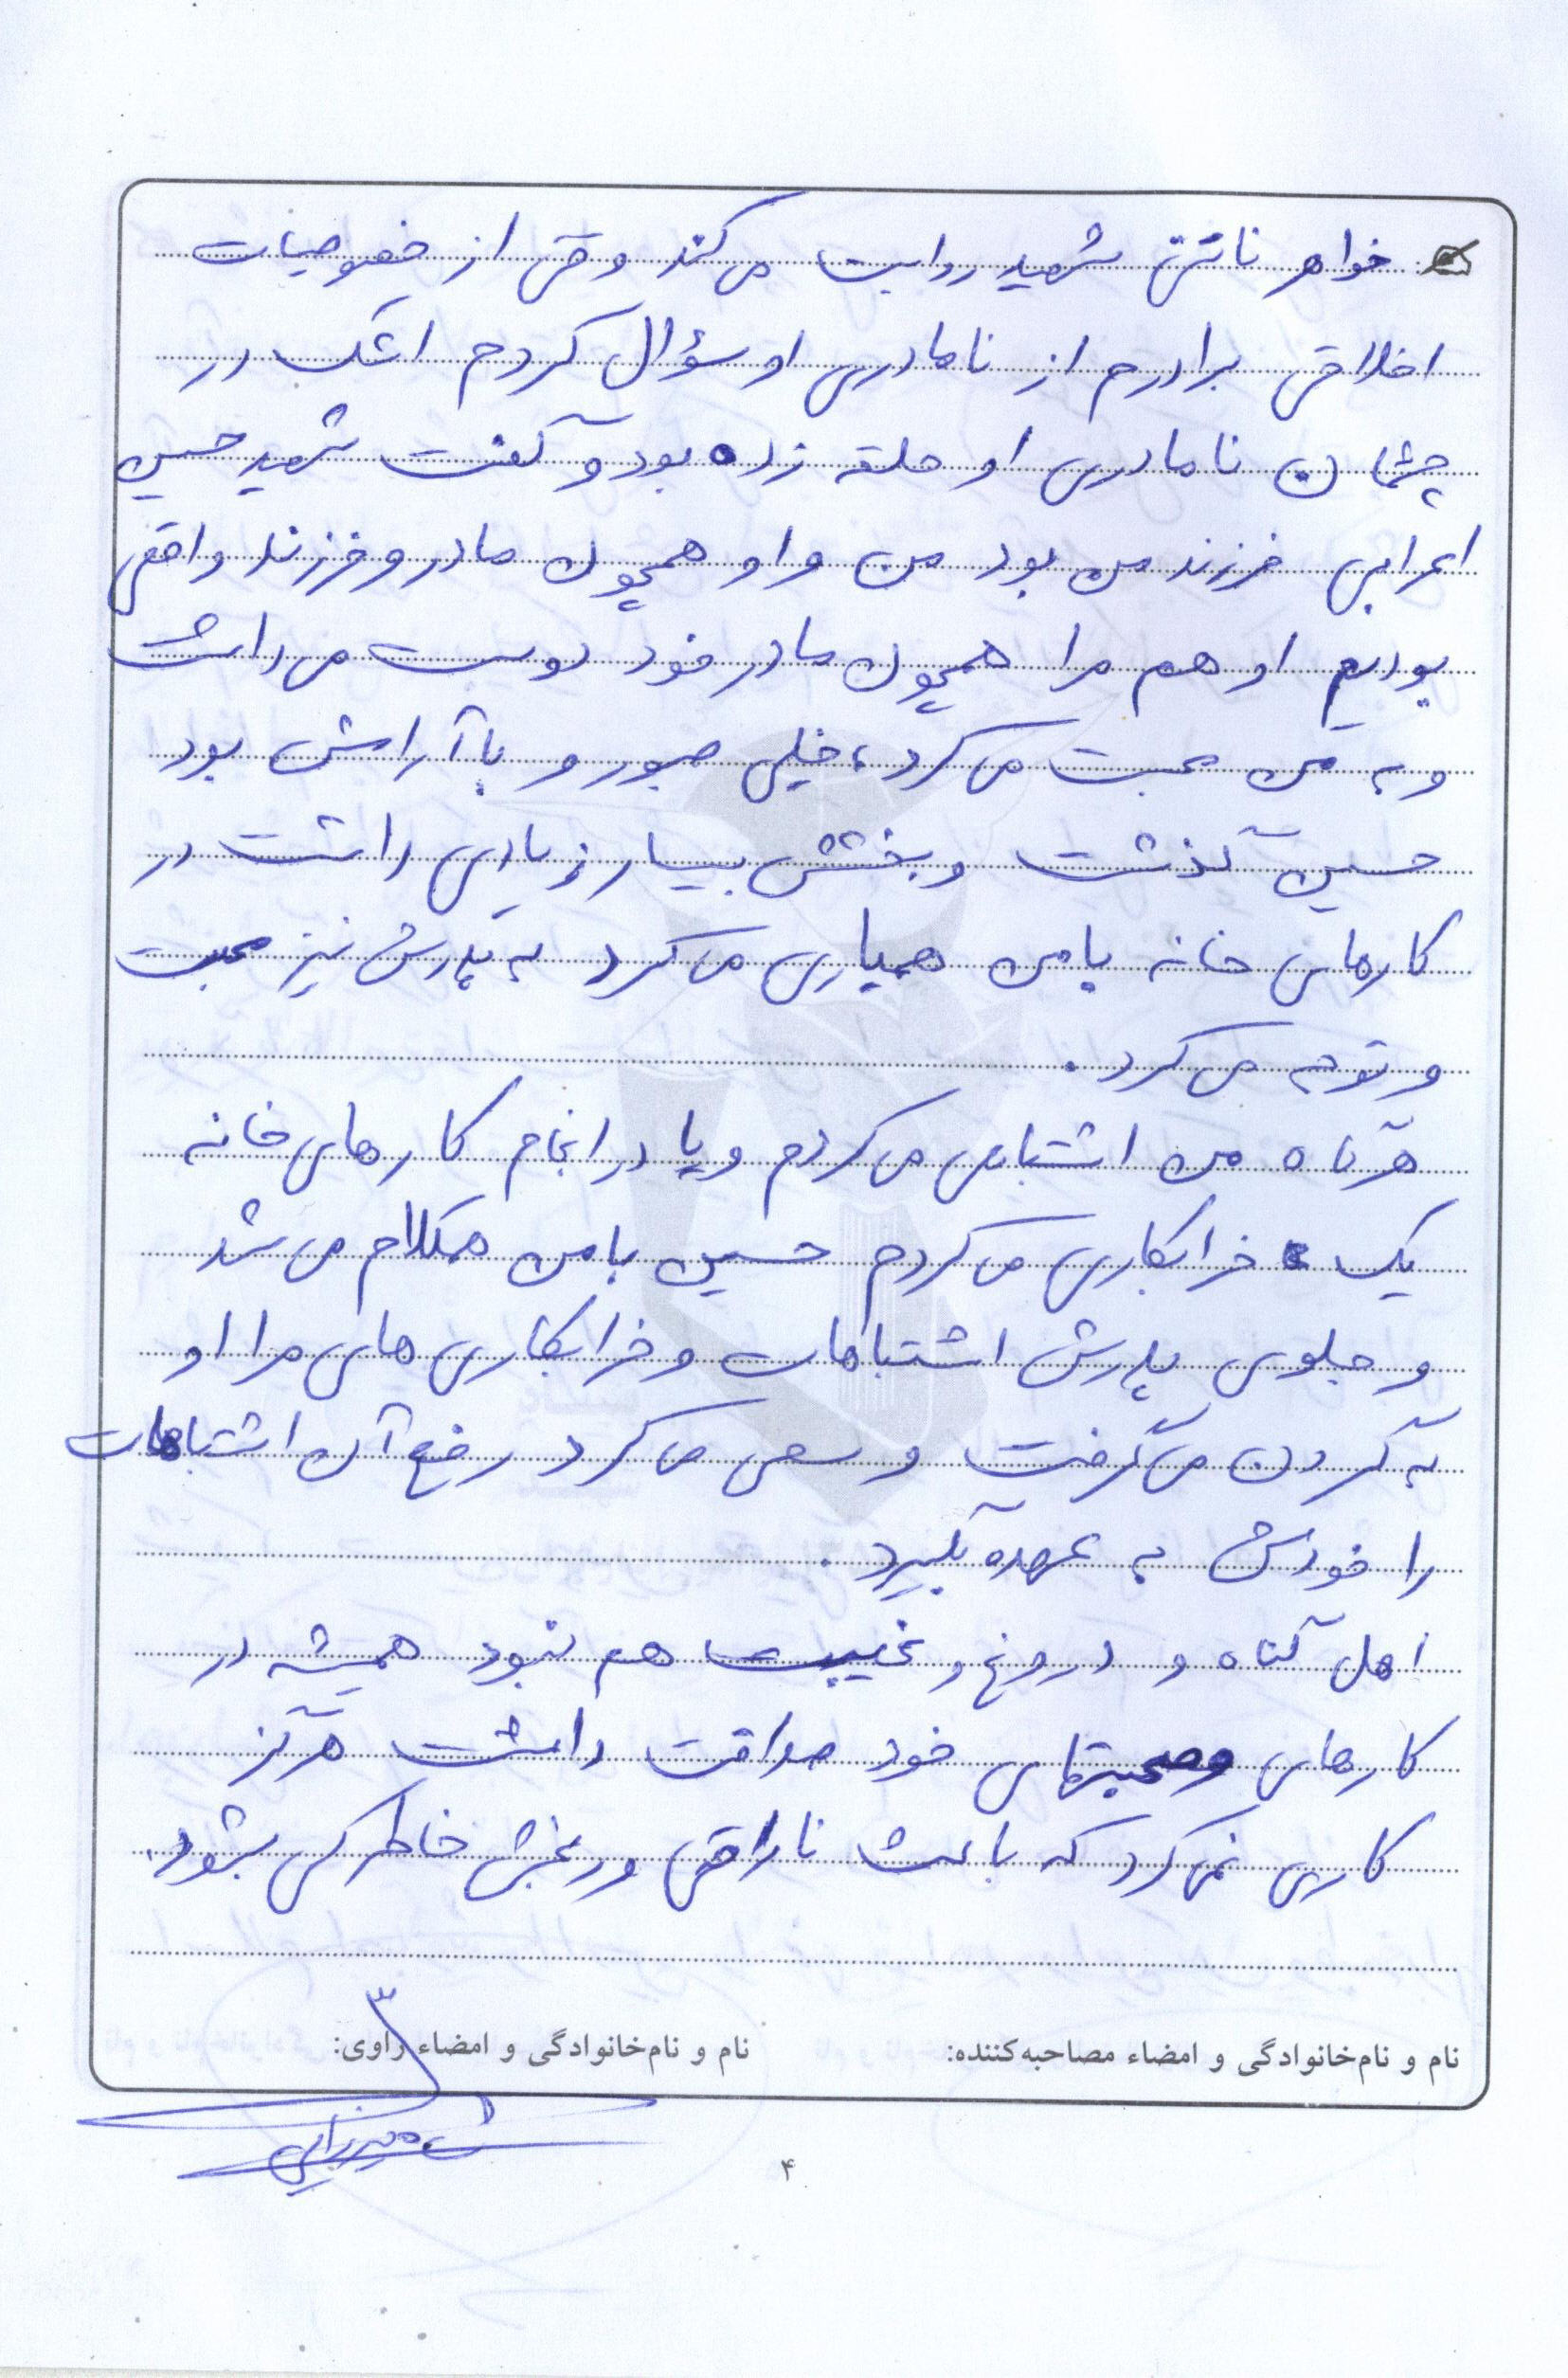 خواهر ناتنی شهید روایت می‌کند وقتی از خصوصیات
اخلاقی برادرم از نامادری او سؤال کردم اشک در
چشمان نامادری او حلقه زده بود و گفت شهید حسین
اعرابی فرزند من بود من و او همچون مادر و فرزند واقعی
بودیم او هم مرا همچون مادر خود دوست می‌داشت
و به من محبت می‌کرد، خیلی صبور و با آرامش بود
حسین گذشت و بخشش بسیار زیادی داشت در
کارهای خانه با من همیاری می‌کرد به پدرش نیز محبت
و توجه می‌کرد.
هرگاه من اشتباهی می‌کردم و یا در انجام کارهای خانه
یک خرابکاری می‌کردم حسین با من همکلام می‌شد
و جلوی پدرش اشتباهات و خرابکاری های مرا او
به گردن می‌گرفت و سعی می‌کرد رفع آن اشتباهات
را خودش به عهده بگیرد.
اهل گناه و دروغ و غیبت هم نبود همیشه در
کارهای و صحبتهای خود صداقت داشت هرگز
کاری نمی‌کرد که باعث ناراحتی و رنجش خاطر کسی بشود.
نام و نام‌خانوادگی و امضاء مصاحبه‌کننده: نام و نام‌خانوادگی و امضاء راوی:
۴